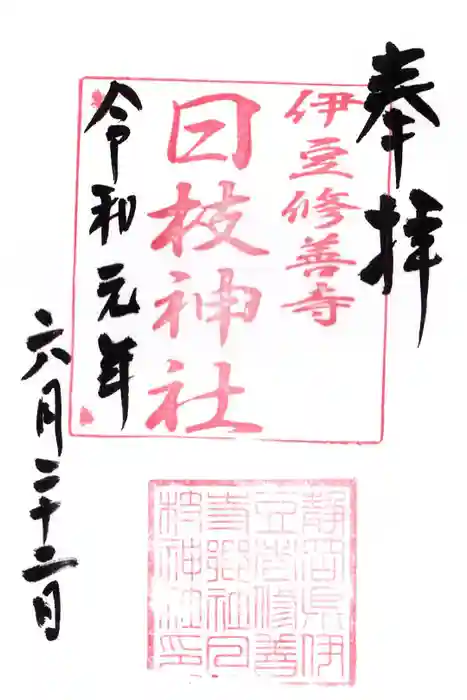 奉拝
伊豆修善寺
日枝神社
令和元年
六月二十二日
静岡県伊
修善
寺郷社日
枝神社印